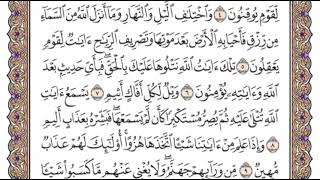 لِقَوْمٍ يُوقِنُونَ ٤ وَٱخْتِلَٰفِ ٱلَّيْلِ وَٱلنَّهَارِ وَمَآ أَنزَلَ ٱللَّهُ مِنَ ٱلسَّمَآءِ
مِن رِّزْقٍ فَأَحْيَا بِهِ ٱلْأَرْضَ بَعْدَ مَوْتِهَا وَتَصْرِيفِ ٱلرِّيَٰحِ ءَايَٰتٌ لِّقَوْمٍ
يَعْقِلُونَ ٥ تِلْكَ ءَايَٰتُ ٱللَّهِ نَتْلُوهَا عَلَيْكَ بِٱلْحَقِّ ۖ فَبِأَيِّ حَدِيثٍۭ بَعْدَ
ٱللَّهِ وَءَايَٰتِهِۦ يُؤْمِنُونَ ٦ وَيْلٌ لِّكُلِّ أَفَّاكٍ أَثِيمٍ ٧ يَسْمَعُ ءَايَٰتِ
ٱللَّهِ تُتْلَىٰ عَلَيْهِ ثُمَّ يُصِرُّ مُسْتَكْبِرًا كَأَن لَّمْ يَسْمَعْهَا ۖ فَبَشِّرْهُ بِعَذَابٍ أَلِيمٍ
٨ وَإِذَا عَلِمَ مِنْ ءَايَٰتِنَا شَيْـًٔا ٱتَّخَذَهَا هُزُوًا ۚ أُو۟لَٰٓئِكَ لَهُمْ عَذَابٌ
مُّهِينٌ ٩ مِّن وَرَآئِهِمْ جَهَنَّمُ ۖ وَلَا يُغْنِى عَنْهُم مَّا كَسَبُوا۟ شَيْـًٔا